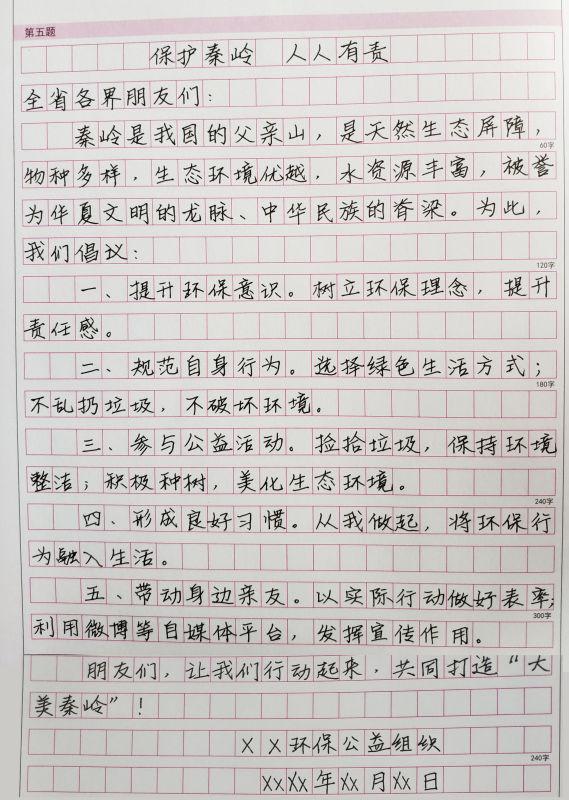 第五题
保护秦岭 人人有责
全省各界朋友们:
秦岭是我国的父亲山,是天然生态屏障,
60字
物种多样,生态环境优越,水资源丰富,被誉
为华夏文明的龙脉、中华民族的脊梁。为此,
我们倡议:
120字
一、提升环保意识。树立环保理念,提升
责任感。
二、规范自身行为。选择绿色生活方式;
180字
不乱扔垃圾,不破坏环境。
三、参与公益活动。捡拾垃圾,保持环境
整洁;积极种树,美化生态环境。
240字
四、形成良好习惯。从我做起,将环保行
为融入生活。
五、带动身边亲友。以实际行动做好表率;
300字
利用微博等自媒体平台,发挥宣传作用。
朋友们,让我们行动起来,共同打造“大
美秦岭”!
XX环保公益组织
240字
XXXX年XX月XX日